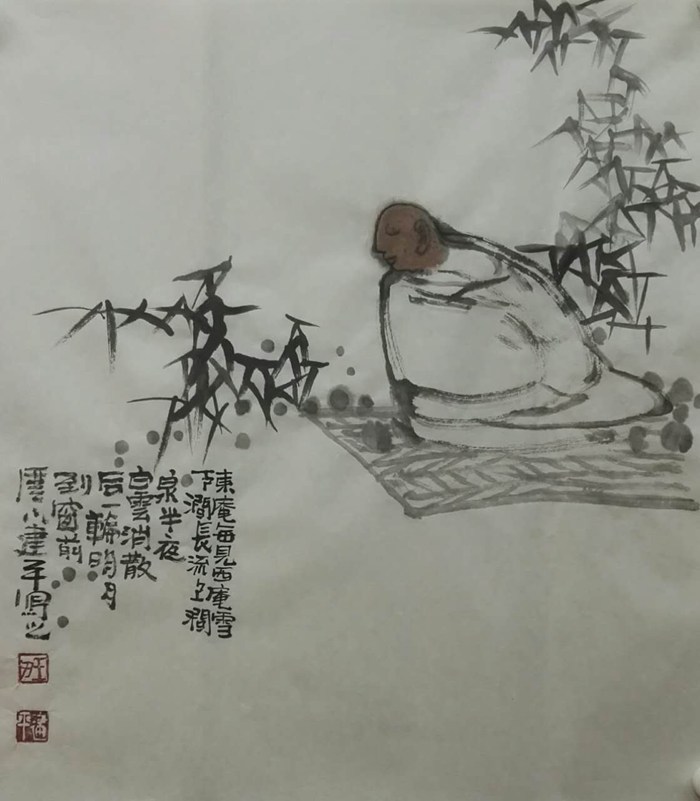 東庵每見西庵雪
下澗長流上澗
泉半夜
白雲消散
后一輪明月
到窗前
建平寫之